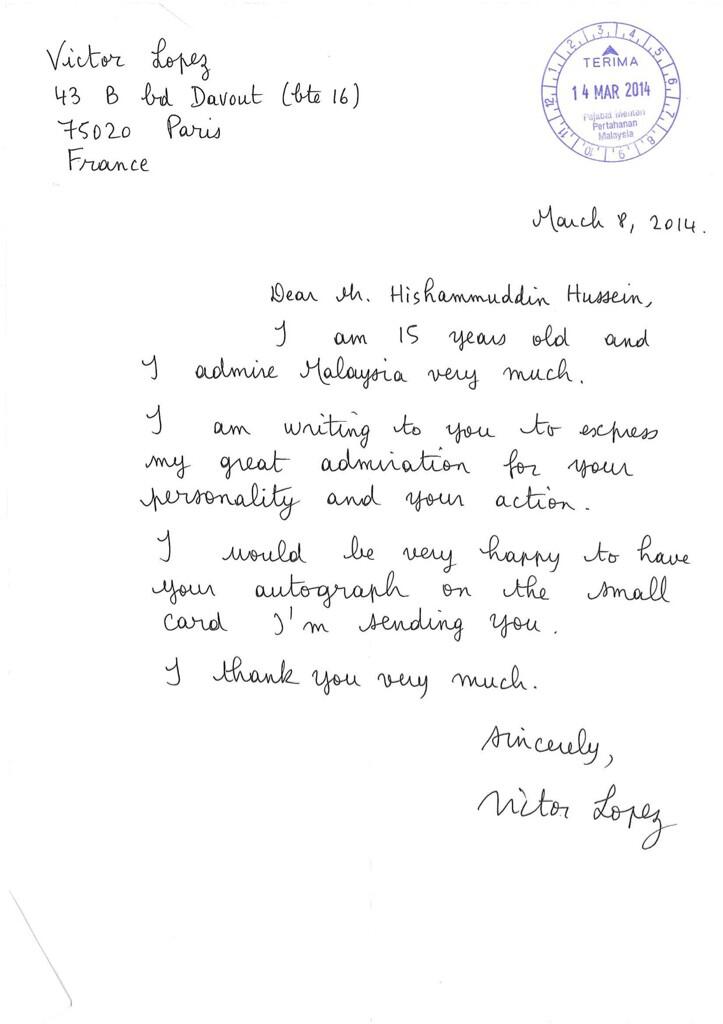 Victor Lopez
43 B bd Davout (bte 16)
75020 Paris
France
TERIMA
14 MAR 2014
Pejabat Menteri
Pertahanan
Malaysia
1 2 3 4 5 6 7 8 9 10 11 12
March 8, 2014.
Dear Mr. Hishammuddin Hussein,
I am 15 years old and
I admire Malaysia very much.
I am writing to you to express
my great admiration for your
personality and your action.
I would be very happy to have
your autograph on the small
card I'm sending you.
I thank you very much.
Sincerely,
Victor Lopez